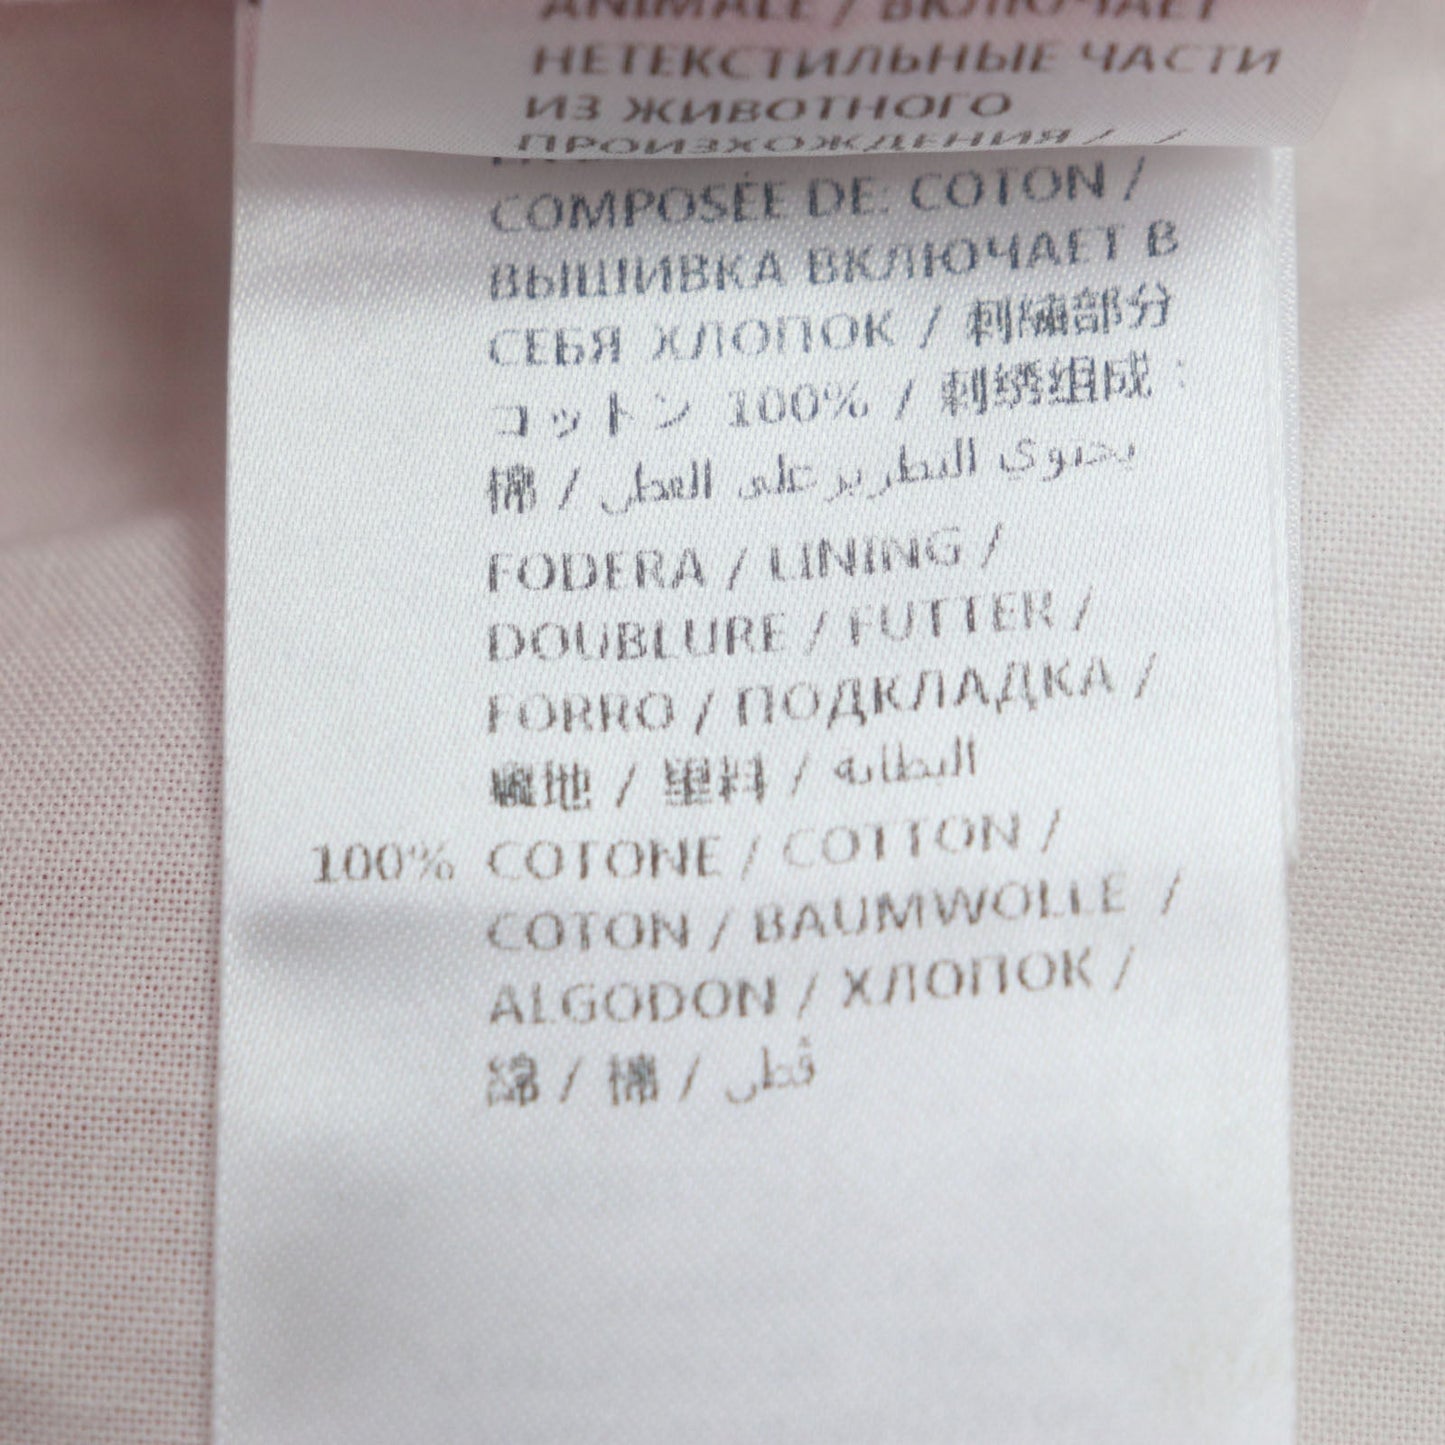 ANIMALE / ВКЛЮЧАЕТ
НЕТЕКСТИЛЬНЫЕ ЧАСТИ
ИЗ ЖИВОТНОГО
ПРОИЗХОЖДЕНИЯ / /
COMPOSÉE DE: COTON /
ВЫШИВКА ВКЛЮЧАЕТ В
СЕБЯ ХЛОПОК / 刺繍部分
コットン 100% / 刺绣组成 :
棉 / يحتوي التطريز على القطن
FODERA / LINING /
DOUBLURE / FUTTER /
FORRO / ПОДКЛАДКА /
裏地 / 里料 / البطانة
100% COTONE / COTTON /
COTON / BAUMWOLLE /
ALGODON / ХЛОПОК /
綿 / 棉 / قطن